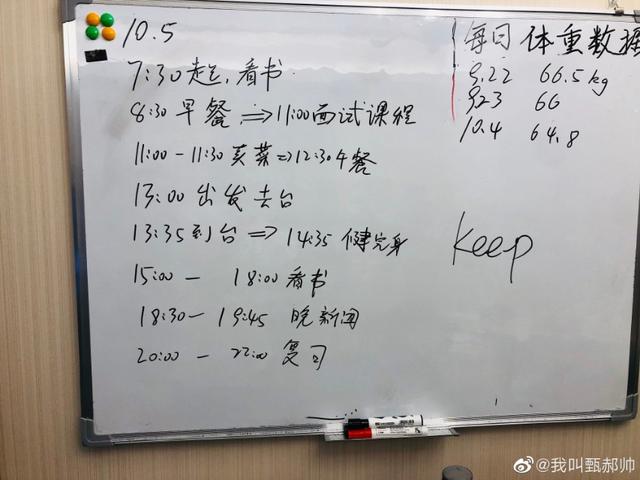 10.5
7:30起,看书
8:30早餐 ⇒11:00面试课程
11:00-11:30买菜⇒12:30午餐
13:00出发去台
13:35到台⇒14:35健完身
15:00 - 18:00看书
18:30-19:45 晚新闻
20:00 - 22:00 复习
每日体重数据
9.22 66.5kg
9.23 66
10.4 64.8
keep
@我叫甄郝帅